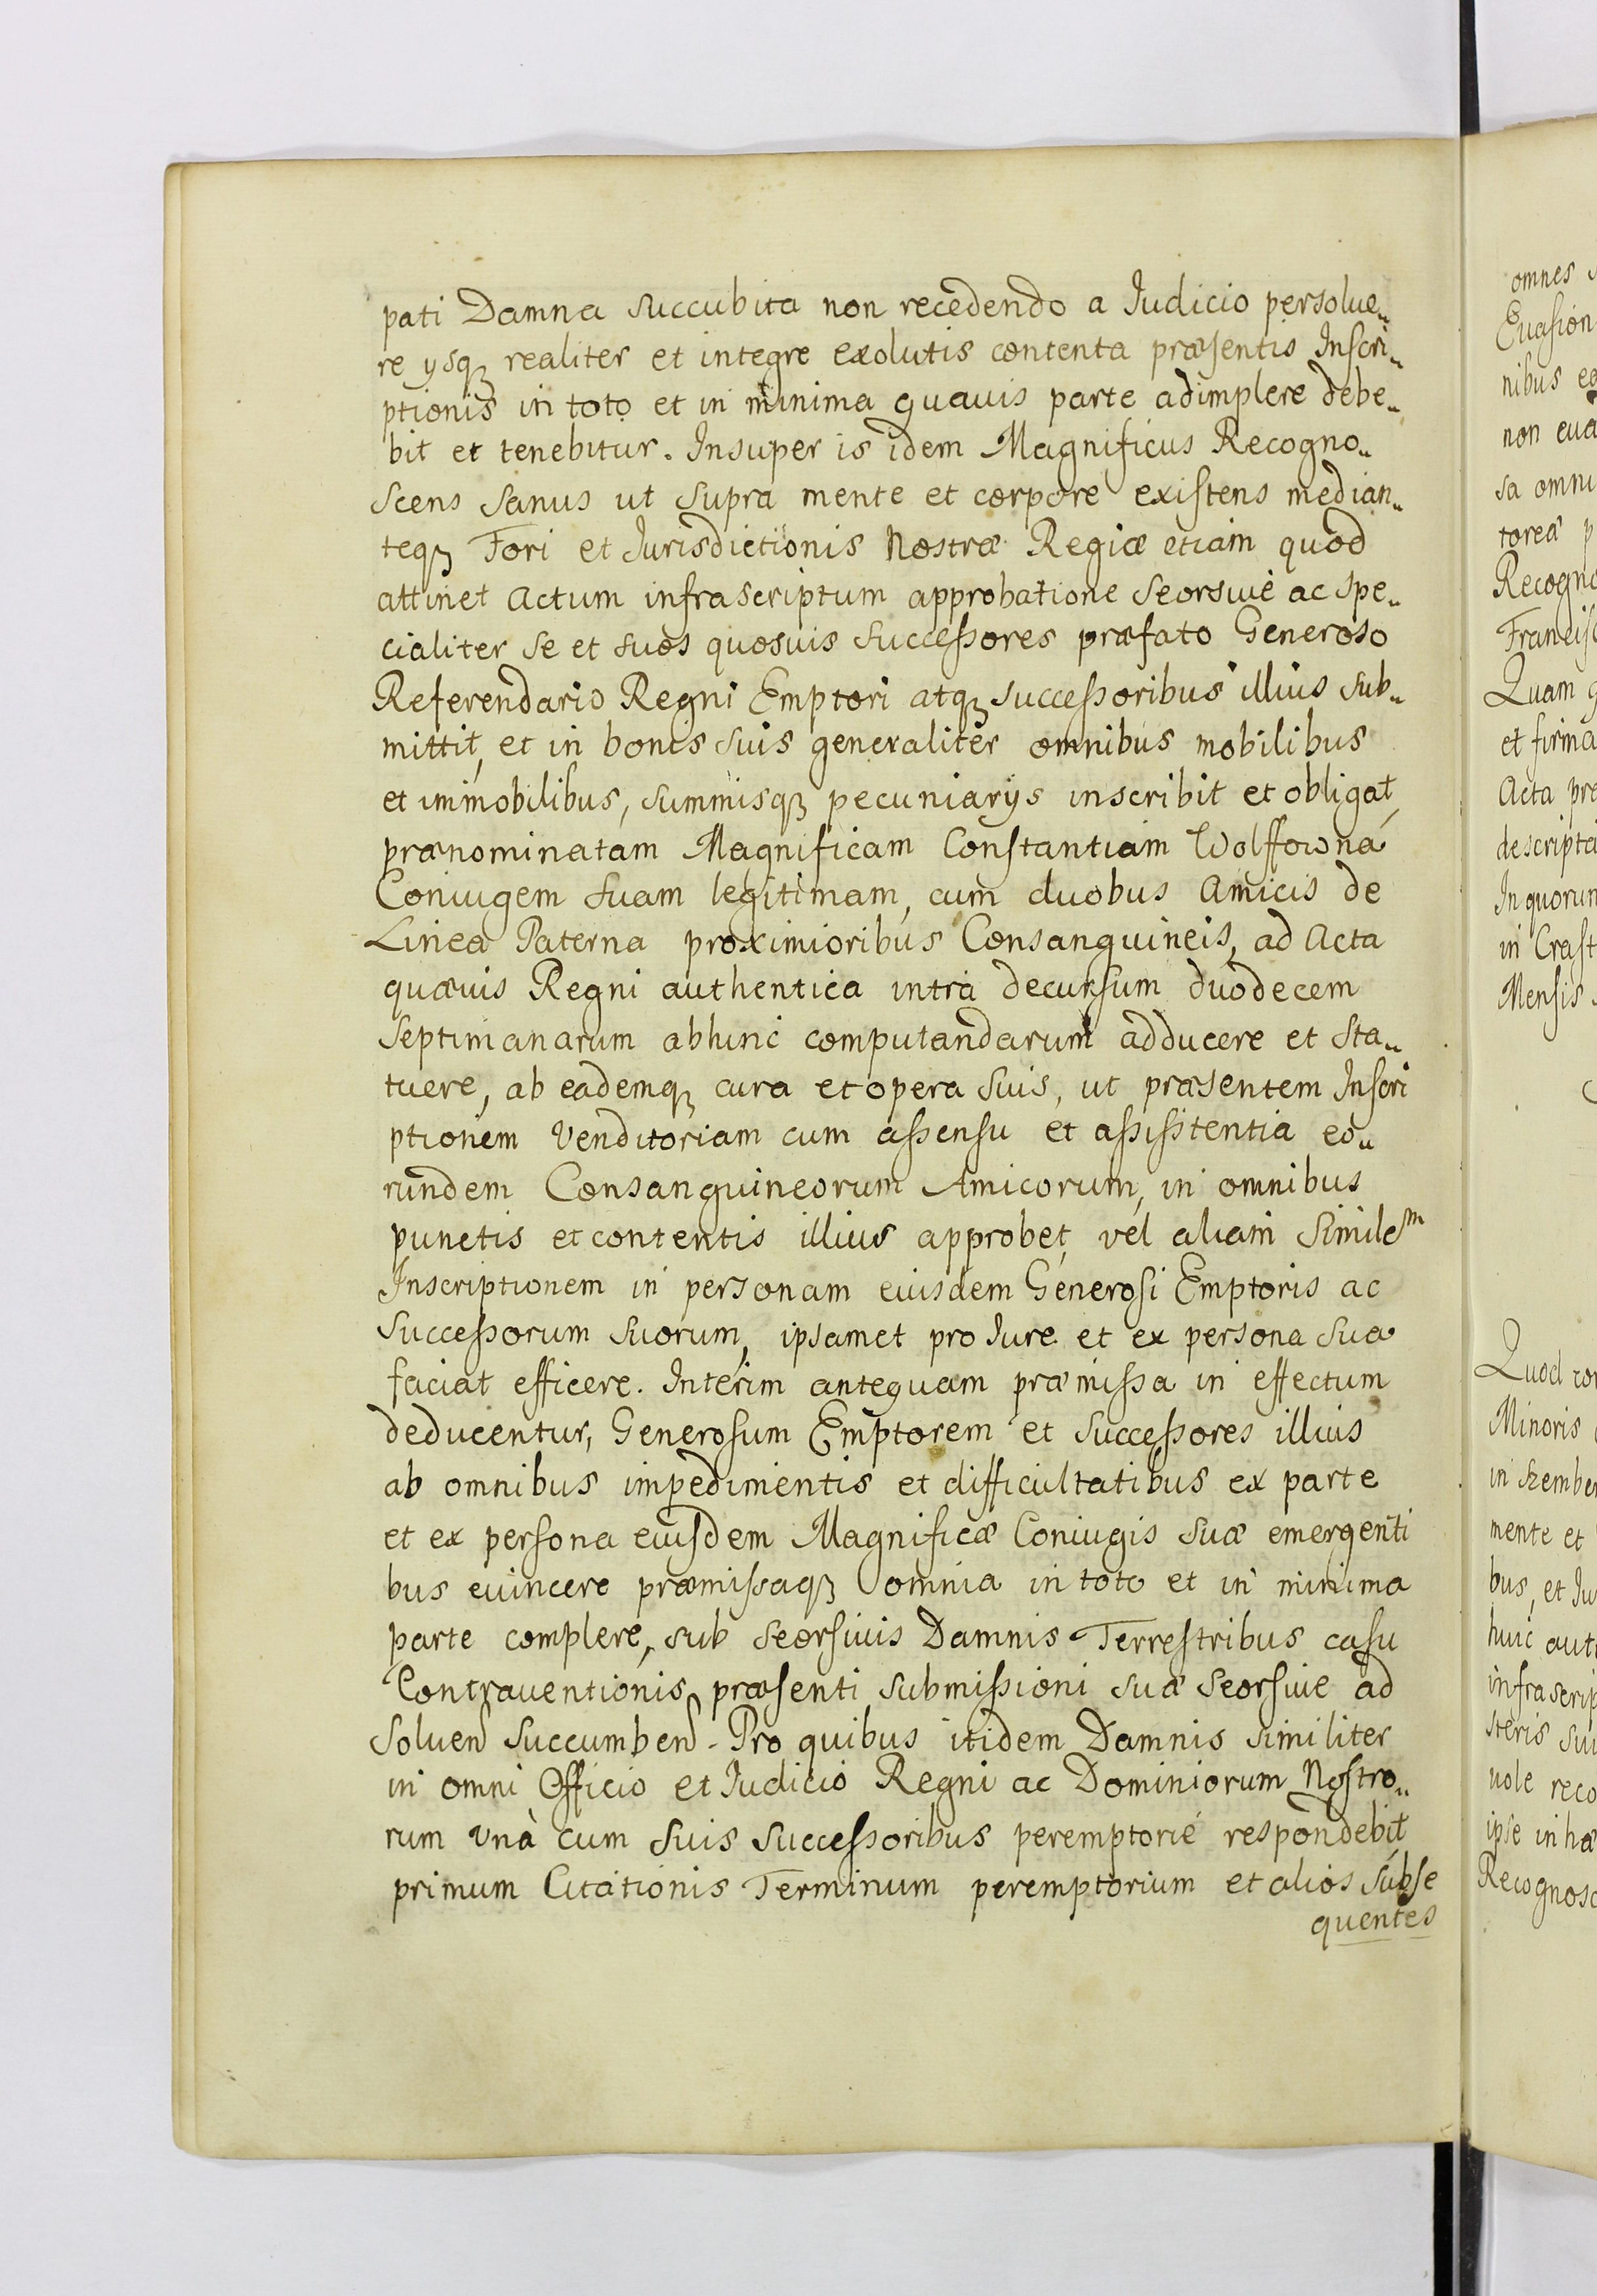 pati Damna succubita non recedendo a Iudicio persolue„
re ysq₃ realiter et integre exolutis contenta præsentis Inscri„
ptionis in toto et in minima quauis parte adimplere debe„
bit et tenebitur. Insuper is idem Magnificus Recogno„
scens sanus ut supra mente et corpore existens median„
teq₃ Fori et Iurisdictionis Nostræ Regiæ etiam quod
attinet Actum infrascriptum approbatione seorsiue ac spe„
cialiter se et suos quosuis successores præfato Generoso
Referendario Regni Emptori atq₃ successoribus illius sub„
mittit, et in bonis suis generaliter omnibus mobilibus
et immobilibus, summisq₃ pecuniarijs inscribit et obligat,
prænominatam Magnificam Constantiam Wolffowna
Coniugem suam legitimam, cum duobus Amicis de
Linea Paterna proximioribus Consanguineis, ad Acta
quæuis Regni authentica intra decursum duodecem
septimanarum abhinc computandarum adducere et sta„
tuere, ab eademq₃ cura et opera suis, ut præsentem Inscri
ptionem Venditoriam cum assensu et assistentia eo„
rundem Consanguineorum Amicorum, in omnibus
punctis et contentis illius approbet, vel aliam simile^m
Inscriptionem in personam eiusdem Generosi Emptoris ac
successorum suorum, ipsamet pro Iure et ex persona sua
faciat efficere. Interim antequam præmissa in effectum
deducentur, Generosum Emptorem et successores illius
ab omnibus impedimentis et difficultatibus ex parte
et ex persona eiusdem Magnificæ Coniugis suæ emergenti
bus euincere præmissaq₃ omnia in toto et in minima
parte complere, sub seorsiuis Damnis Terrestribus casu
Contrauentionis præsenti submissioni suæ seorsiue ad
soluen succumben. Pro quibus itidem Damnis similiter
in omni Officio et Iudicio Regni ac Dominiorum Nostro„
rum vnà cum suis successoribus peremptorié respondebit
primum Citationis Terminum peremptorium et alios subse
quentes
omnes
Euasion
nibus
non eua
sa omni
toreæ p
Recogno
Francisc
Quam g
et firma
Acta præ
descripta
In quorum
in Crast
Mensis
Quod
Minoris
in szember
mente et
bus, et Iu
huic aut
infrascrip
steris sui
uole reco
ipse in hæ
Recognosc